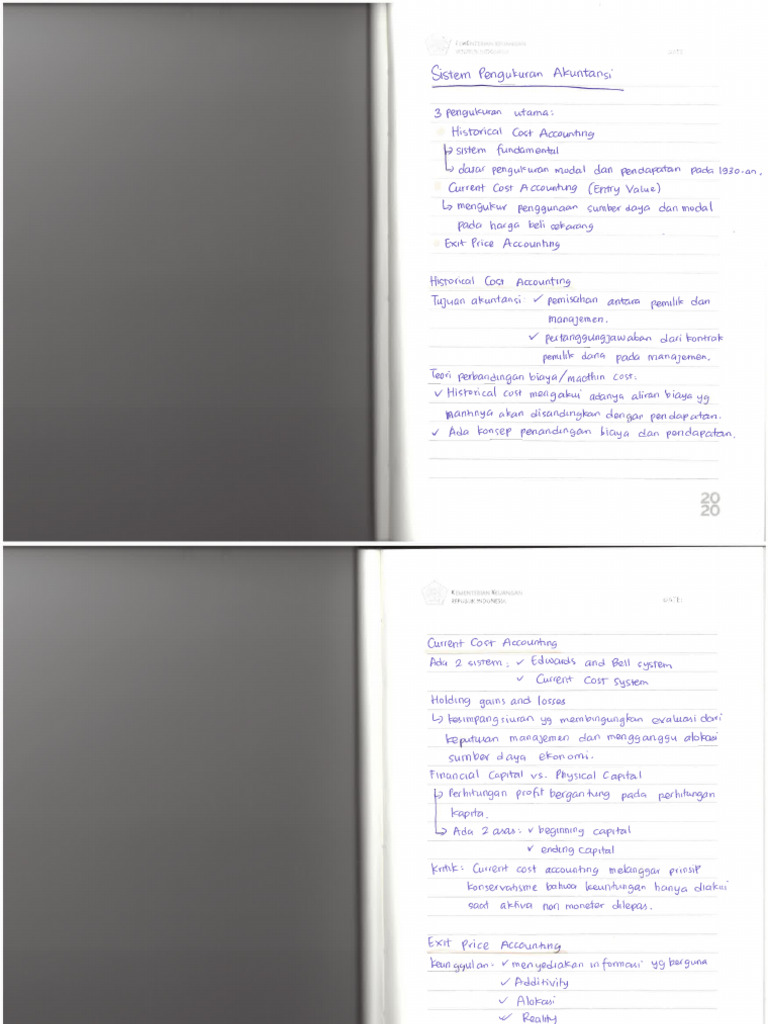 KEMENTERIAN KEUANGAN
Sistem Pengukuran Akuntansi
3 pengukuran utama:
Historical Cost Accounting
↳ sistem fundamental
↳ dasar pengukuran modal dan pendapatan pada 1930-an.
Current Cost Accounting (Entry Value)
↳ mengukur penggunaan sumber daya dan modal
pada harga beli sekarang
Exit Price Accounting
Historical Cost Accounting
Tujuan akuntansi ✓ pemisahan antara pemilik dan
manajemen.
✓ pertanggungjawaban dari kontrak
pemilik dana pada manajemen.
Teori perbandingan biaya/macthin cost:
✓ Historical cost mengakui adanya aliran biaya yg
nantinya akan disandingkan dengan pendapatan.
✓ Ada konsep penandingan biaya dan pendapatan.
20
20
KEMENTERIAN KEUANGAN
REPUBLIK INDONESIA
Current Cost Accounting
Ada 2 sistem: ✓ Edwards and Bell system
✓ Current Cost System
Holding gains and losses
↳ kesimpangsiuran yg membingungkan evaluasi dari
keputusan manajemen dan mengganggu alokasi
sumber daya ekonomi.
Financial Capital vs. Physical Capital
↳ Perhitungan profit bergantung pada perhitungan
kapita.
↳ Ada 2 asas: ✓ beginning capital
✓ ending capital
Kritik: Current cost accounting melanggar prinsip
konservatisme bahwa keuntungan hanya diakui
saat aktiva non moneter dilepas.
Exit Price Accounting
keunggulan: ✓ menyediakan informasi yg berguna
✓ Additivity
✓ Alokasi
✓ Reality